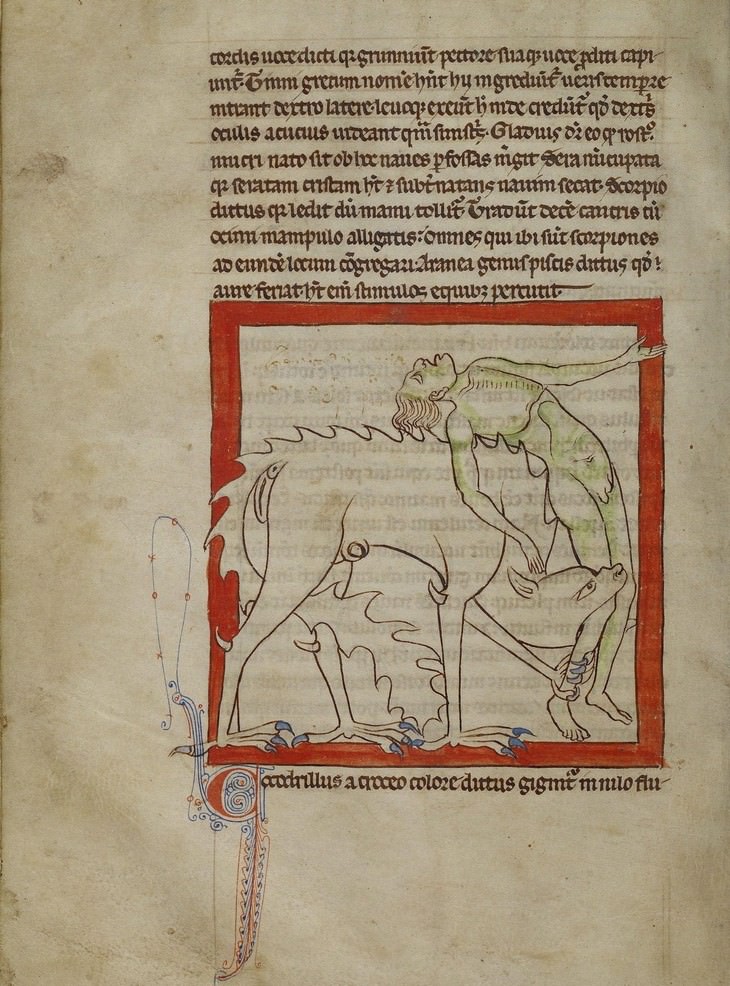 cordis uoce dicti qr grunniūt pectore sua qꝫ uoce ꝓditi capi
unt᷑. Timi grecum nom̄e hn̄t hy ingrediūt᷑ ueris tempore
intrant dextro latere leuoqꝫ exeūt h̄ inde credūt᷑ qd̄ dextris
oculis acucius uideant qm̄ sinist᷑s. Gladius dr̄ eo qꝫ rost᷑o
mucronato sit ob hoc naues ꝑfossas m̄git Serra nūcupata
qr serratam cristam ht᷑ ⁊ subt᷑natans nauim secat. Scorpio
dictus qr ledit dū manu tollit᷑. Tradūt decē cancris cū
ocimi manipulo alligatis: omnes qui ibi sūt scorpiones
ad eundē locum cōgregari. Aranea genus piscis dictus qd̄
aure feriat. ht᷑ em̄ stimulos equibꝫ percutit.
Cocodrillus a croceo colore dictus gignit᷑ in nilo flu